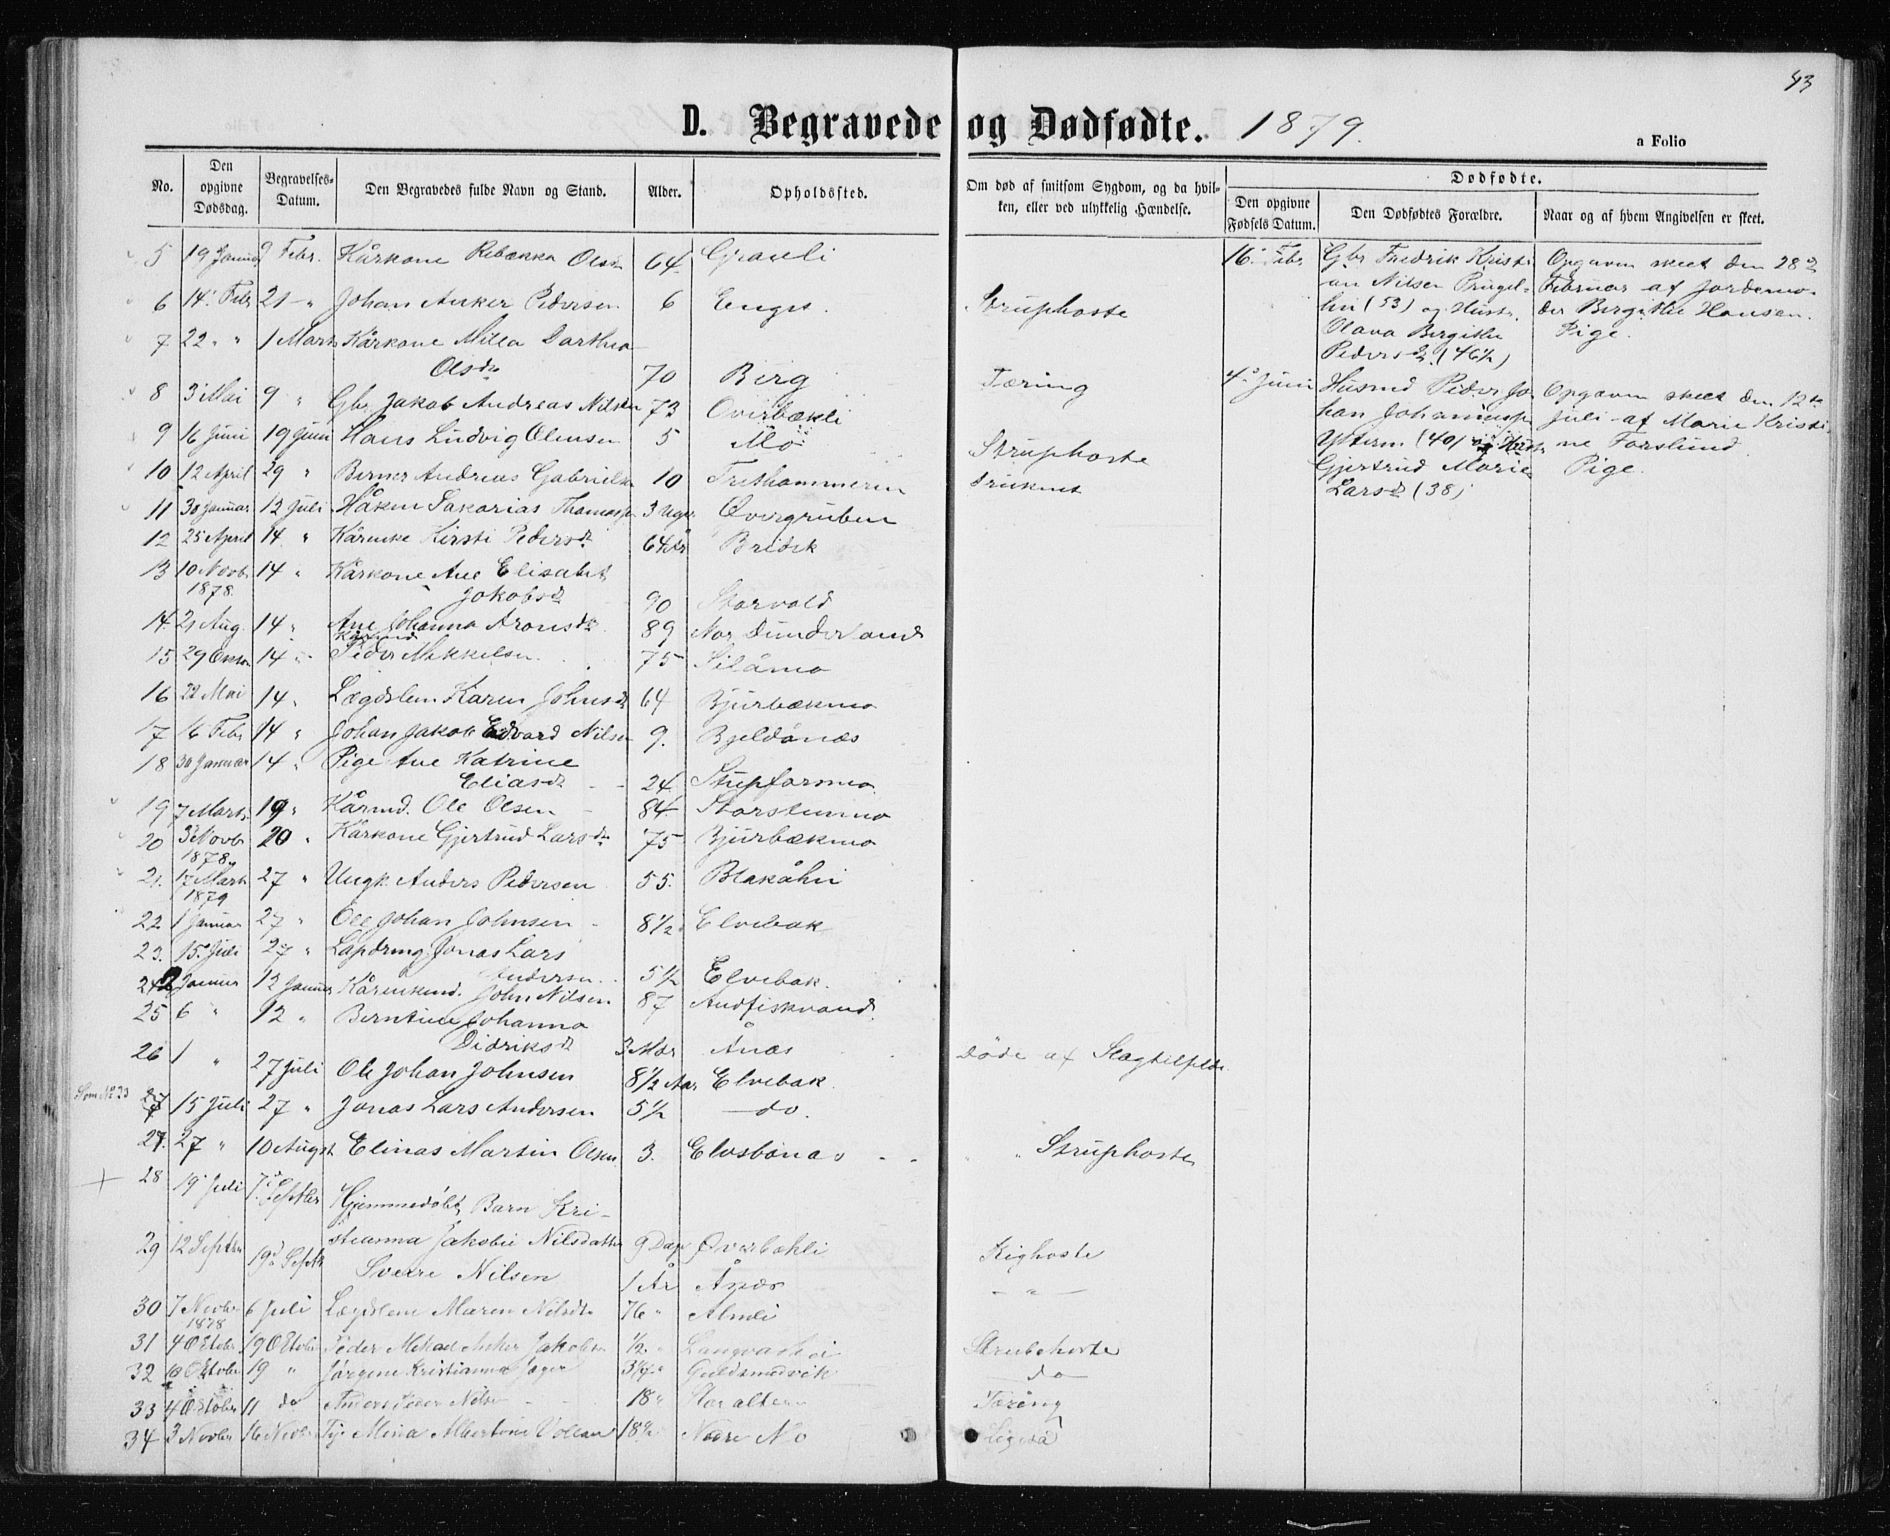 43
D. Begravede og Dødfødte. 1879.
a Folio
No.
Den opgivne Dødsdag.
Begravelses-Datum.
Den Begravedes fulde Navn og Stand.
Alder.
Opholdssted.
Om død af smitsom Sygdom, og da hvilken, eller ved ulykkelig Hændelse.
Dødfødte.
Den opgivne Fødsels Datum.
Den Dødfødtes Forældre.
Naar og af hvem Angivelsen er skeet.
5 19 Januar 9 Febr. Kårkone Rebækka Olsd 64 Graneli
6 14. Febr 21 - " Johan Anker Pedersen 6 Enges. Struphoste
7 22 " " 1 Marts Kårkone Milla Dorthea
Olsd 70 Berg
8 3 Mai 9 " Gbr. Jakob Andreas Nilsen 73 Tæring
9 16 Juni 19 Juni Hans Ludvig Olensen 5 Mo Struphoste
10 12 April 29 " Berner Andreas Gabrielsen 10 druknet
11 30 Januar 12 Juli Håkon Sakarias Thomasen 3 Uger Øvergruben
12 25 April 14 " Kårenke Kirsti Pedersd 64 år Bredek
13 10 Novbr 14 " Kårkone Ane Elisabet
1878 Jakobsd 90 Storvold
14. 21 Aug. 14 " Ane Johanna Aronsd 89 Nor Dunderland
15 29 14 " Kårmand Peder Mikkelsen 75 Silåmo
16 22 Mai 14 " Lægdslem Karen Johnsd 64 Bjurbækmo
17 16 Febr 14 " Johan Jakob Edvard Nilsen 9. Bjeldånæs
18 30 Januar 14 " Pige Ane Katrine
Eliasd 24 Stupforsmo
19 7 Marts 19 " Kårmd. Ole Olsen 84 Storstenmo
20 3 Novbr 20 " Kårkone Gjertrud Larsd 75 Bjurbækmo
1878
21. 17 Marts 27 " Ungk. Anders Pedersen 55. Blakåli
1879
22 1 Januar 27 " Ole Johan Johnsen 8 1/2 Elvebak
23. 15. Juli 27 " Jonas Lars
Andersen 5 1/2 Elvebak.
24 Januar 12 Januar John Nilsen 87 Andfiskvand.
25 6 " 12 " Berntine Johanna
Didriksd 3 Mdr Ånæs
26 1 " 27 Juli Ole Johan Johnsen 8 1/2 Aar Elvebak. Døde af
Som No 23 27 15 Juli 27 " Jonas Lars Andersen 5 1/2 - do.
27. 27 " 10 Augst Elinas Martin Olsen 3. " " Struphoste
28 19 Juli 7. Septbr Hjemmedøbt Barn Kri-
stianna Jakobie Nilsdatter 9 Dage Kighoste
29 12 Septbr 19 Septbr Sverre Nilsen 1 År Ånæs - " -
30 7 Novbr 6 Juli Lægdslem Maren Nilsd 76 " Almli
1878
31 4 Oktober 19 Oktober Peder Mikal Anker Jakobsen 1/2 " Langvashei Strubehoste
32 10 Oktober 19 " Jørgine Kristianna 3 " Guldsmedvik do
33 4 Oktober 11 do Anders Peder Nilsen 18 " Storalteren Tæring
34 3 Novbr 16 Novbr Mina Albertine 18 Nore Mo
16. Febr Gbr Fredrik Kristi-
an Nilsen
(53) og Hustr.
Olava Birgithe
Pedersd (46 1/2)
Opgaven skeet den 28
Februar af Jordemo-
der Birgithe Hansen.
Pige.
4. Juni Husmd Peder Jo-
han Johannesen
Yttern (40) og Hustr
Gjertrud Marie
Larsd (38)
Opgaven skeet den 12te
Juli af Marie Kristi-
ne Forslund
Pige.